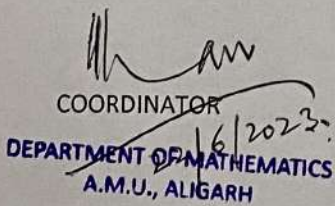 COORDINATOR
/6/2023.
DEPARTMENT OF MATHEMATICS
A.M.U., ALIGARH